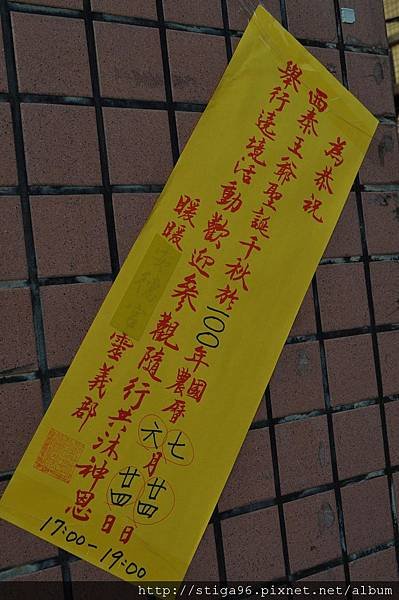 為恭祝
西秦王爺聖誕千秋於一〇〇年國農曆七六月廿四廿四日日
舉行遶境活動歡迎參觀隨行共沐神恩
暖暖
靈義郡
17:00-19:00
http://stiga96.pixnet.net/album